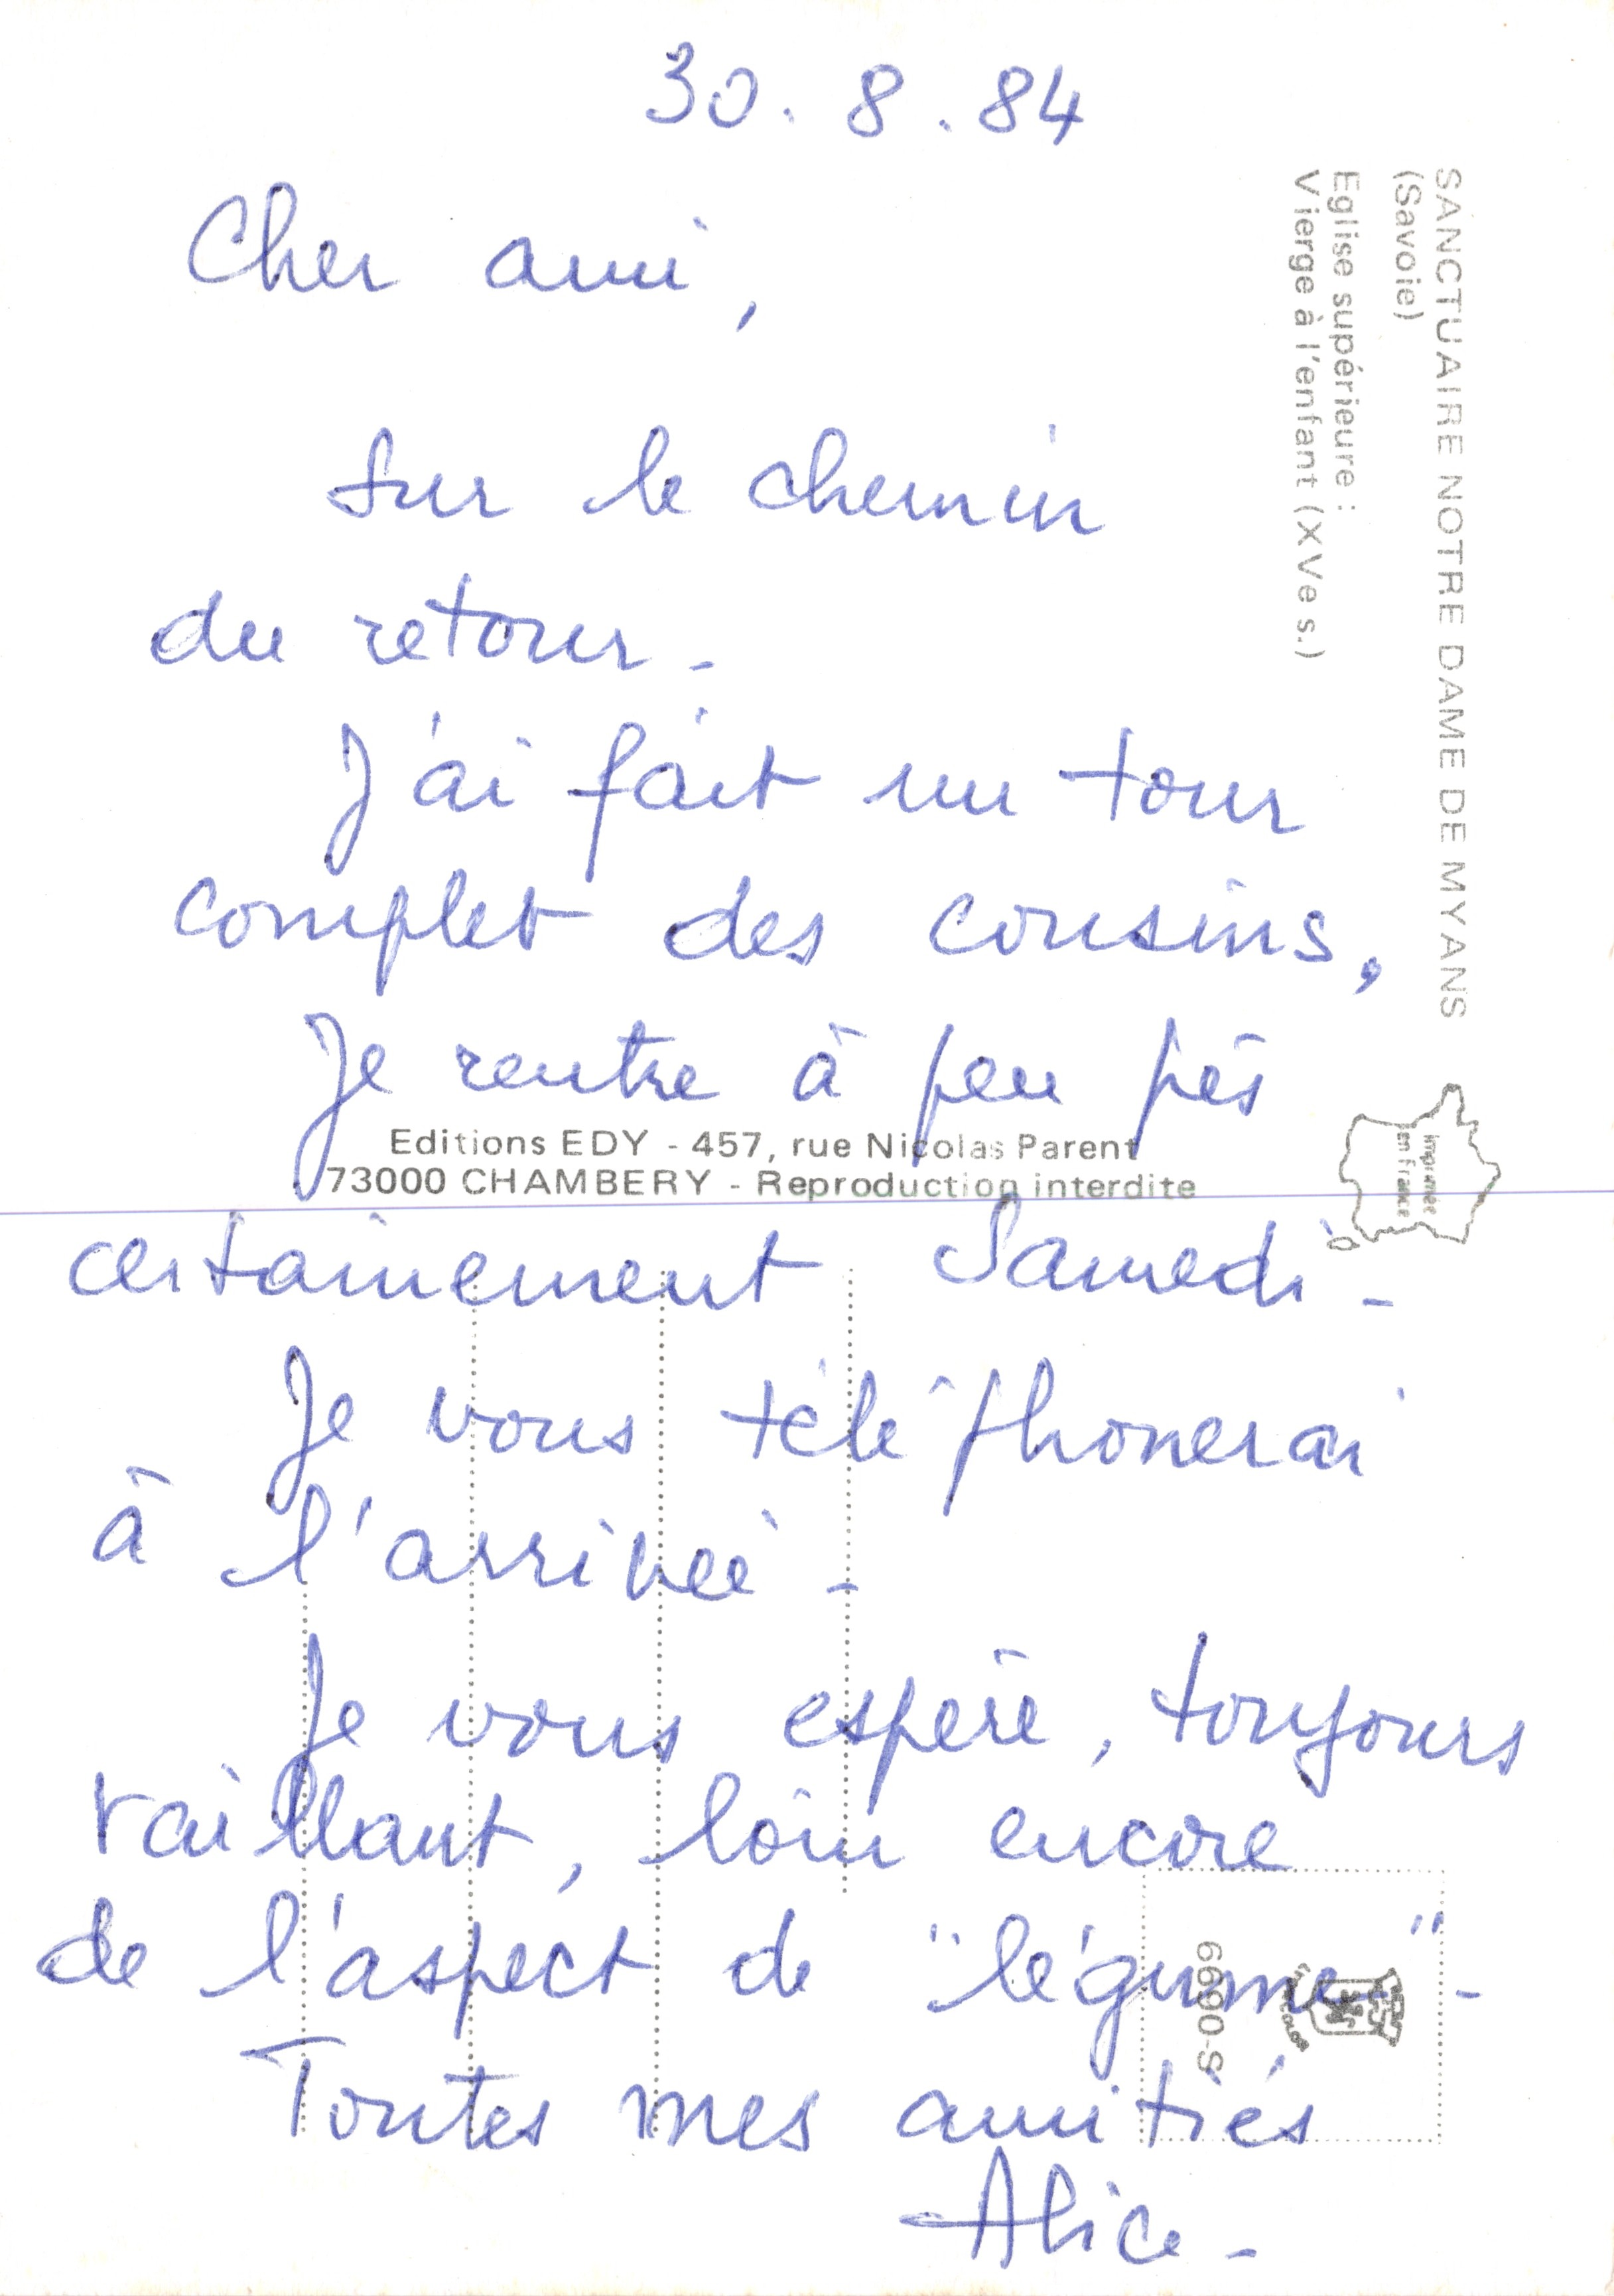 30.8.84
Cher ami,
Sur le chemin
du retour -
J'ai fait un tour
complet des cousins,
Je rentre à peu près
certainement Samedi -
Je vous téléphonerai
à l'arrivée -
Je vous espère, toujours
vaillant, loin encore
de l'aspect de "légume" -
Toutes mes amitiés
Alice -
SANCTUAIRE NOTRE DAME DE MYANS
(Savoie)
Eglise supérieure :
Vierge à l'enfant (XVe s.)
Editions EDY - 457, rue Nicolas Parent
73000 CHAMBERY - Reproduction interdite
imprimé
en France